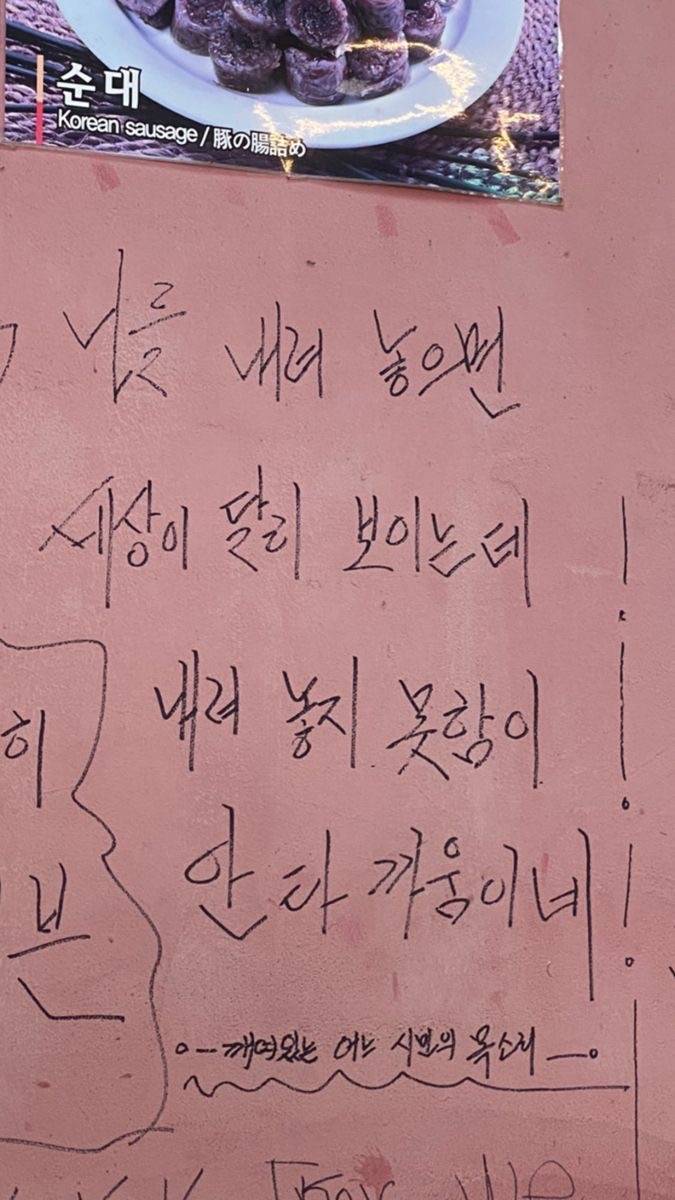 순대
Korean sausage / 豚の腸詰め
내려 놓으면
세상이 달리 보이는데 !
내려 놓지 못함이 !
안타까움이네 !
히
분
깨어있는 어느 시민의 목소리